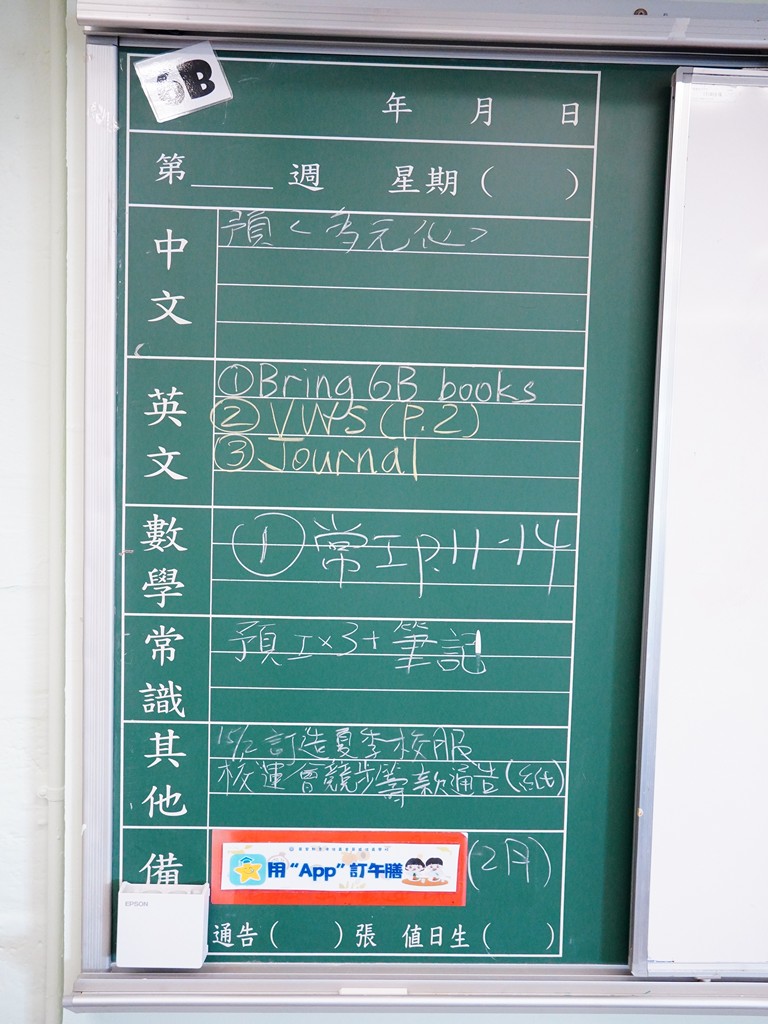 6B
年 月 日
第____週 星期( )
中文
預<多元化>
英文
①Bring 6B books
②VWS(P.2)
③Journal
數學
①常工p.11-14
常識
預工x3+筆記
其他
15/2 訂造夏季校服
校運會競步籌款通告(紙)
備
用“App”訂午膳
(2月)
EPSON
通告( )張 值日生( )